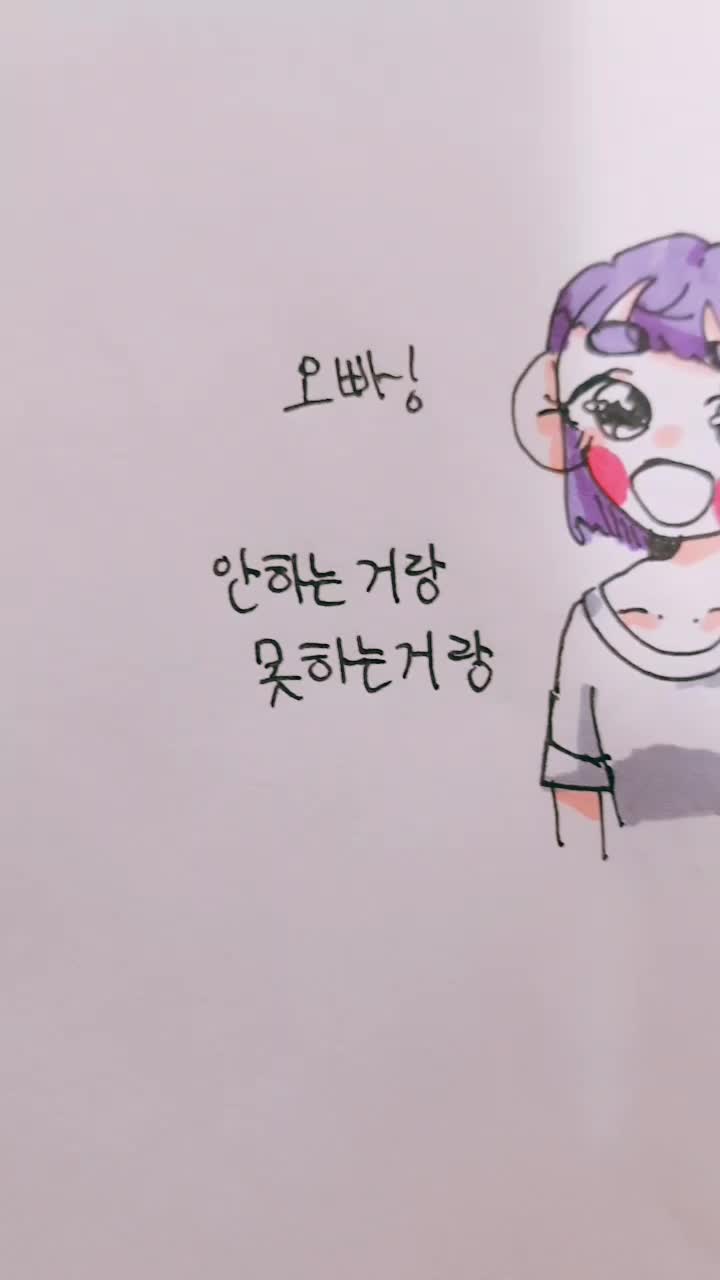 오빠!
안하는 거랑
못하는거랑